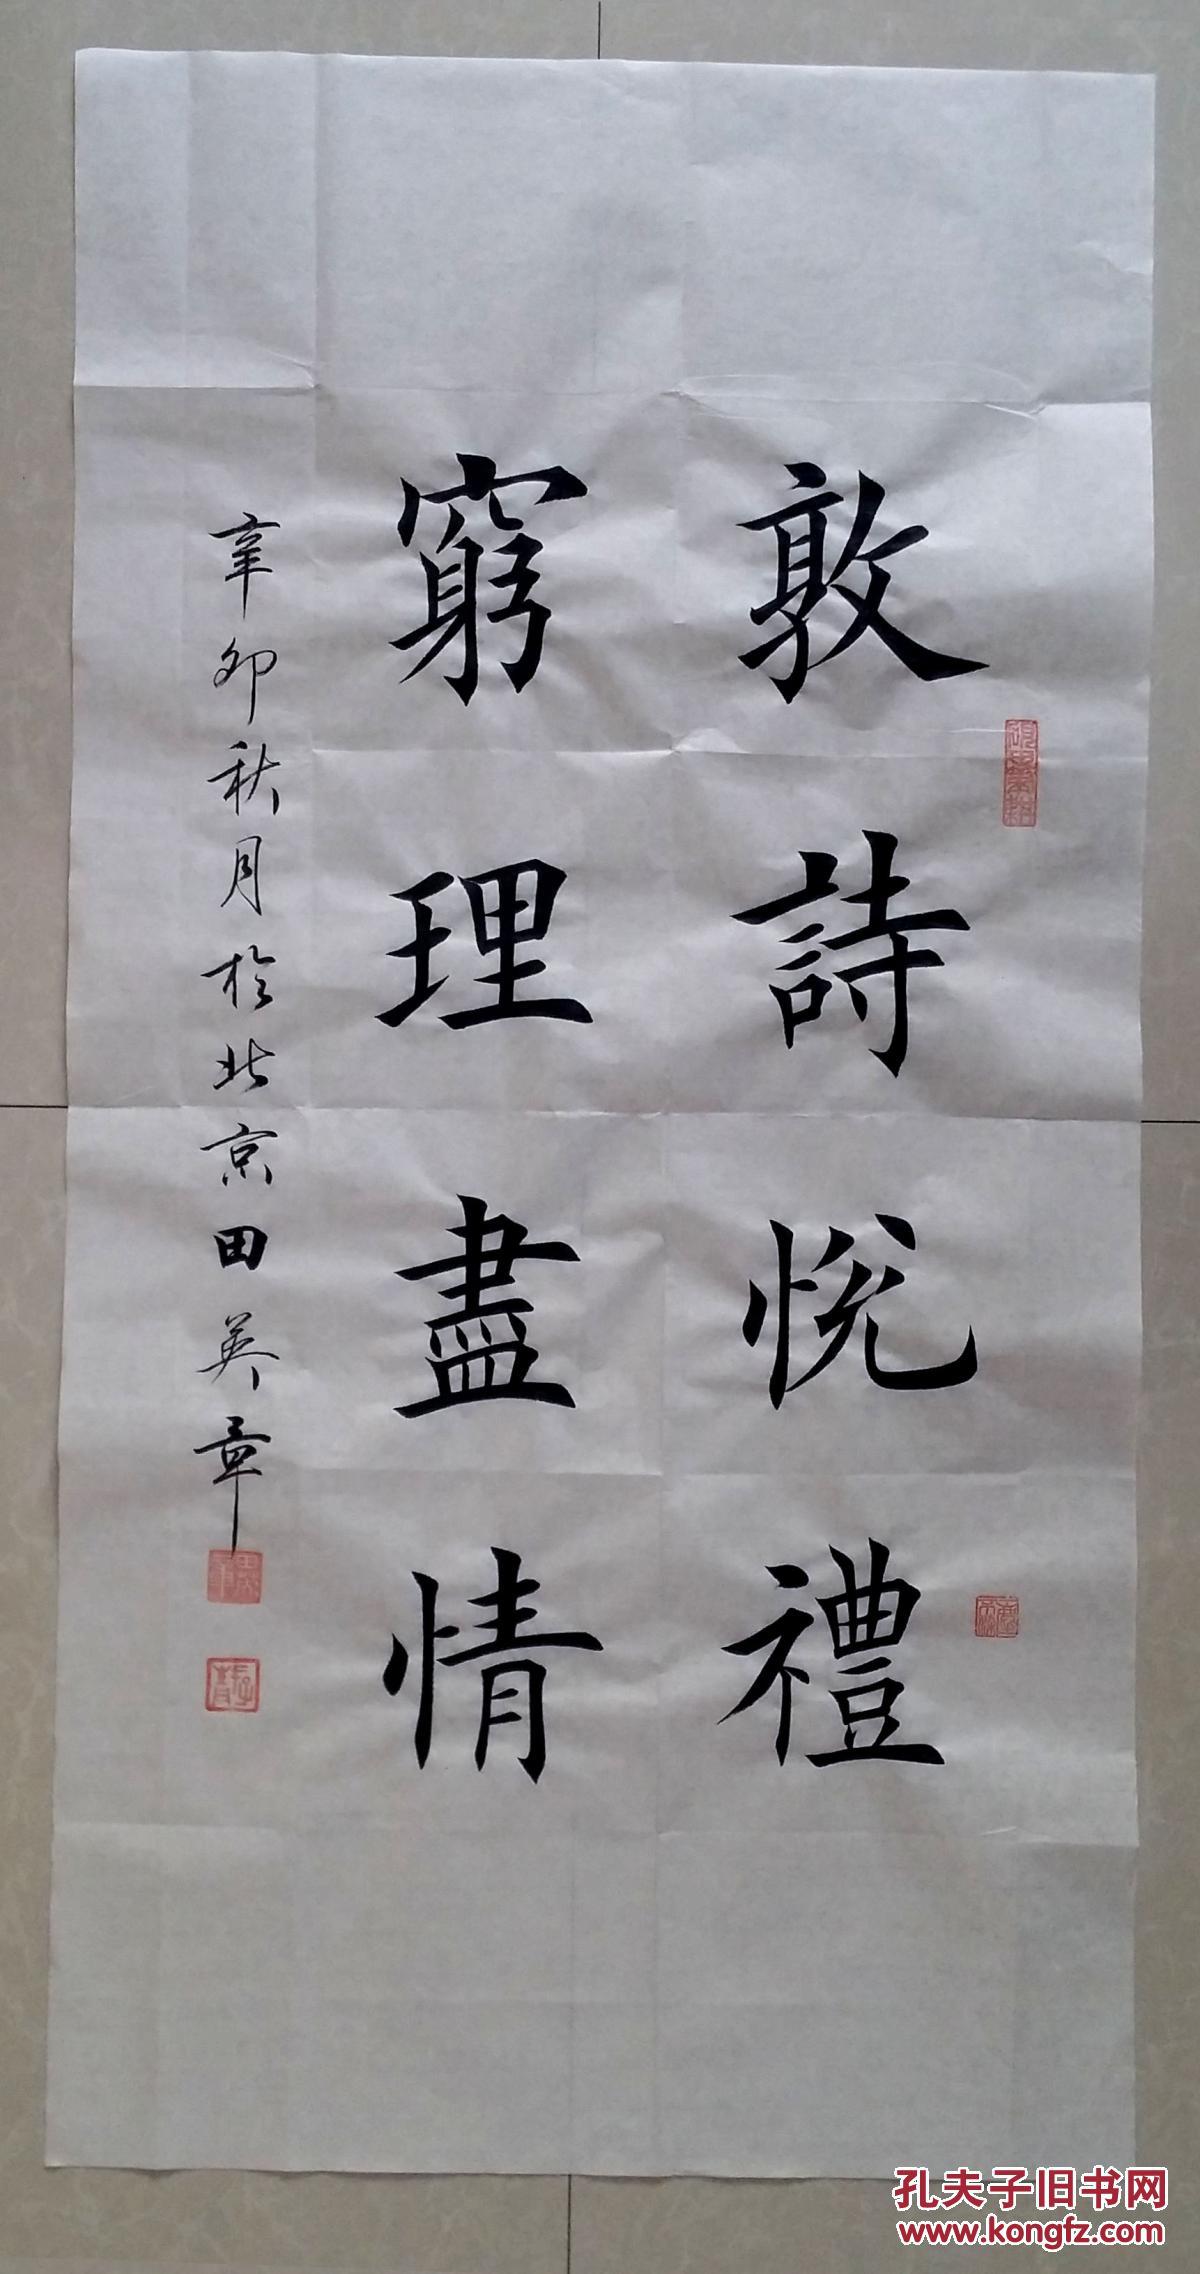 敦詩悅禮
窮理盡情
辛卯秋月於北京田英章
孔夫子旧书网
www.kongfz.com